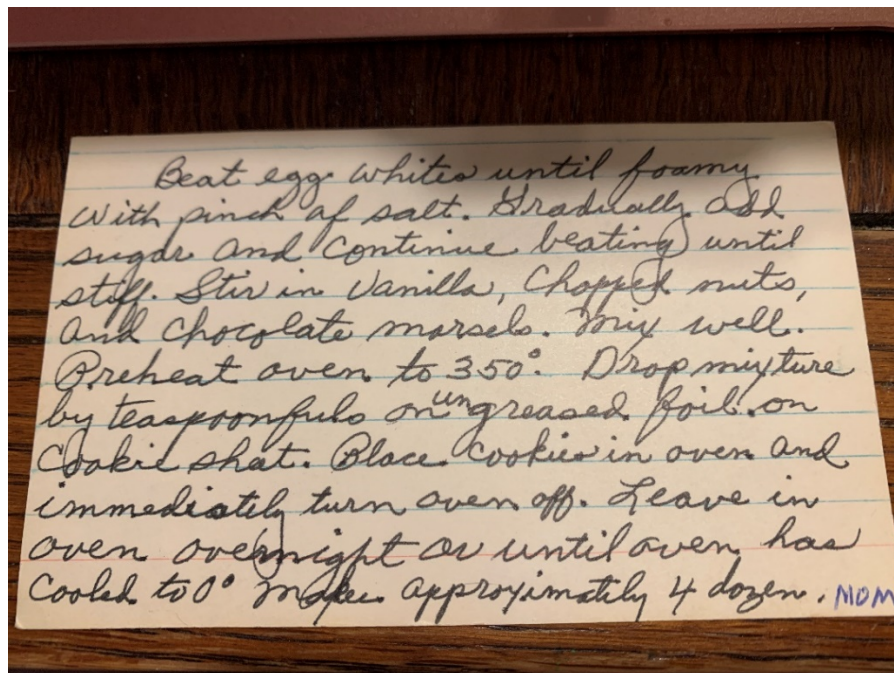 Beat egg whites until foamy
with pinch of salt. Gradually add
sugar and continue beating until
stiff. Stir in Vanilla, Chopped nuts,
and chocolate morsels. Mix well.
Preheat oven to 350°. Drop mixture
by teaspoonfuls on ungreased foil on
Cookie shat. Place cookies in oven and
immediately turn oven off. Leave in
oven overnight or until oven has
Cooled to 0° Makes approximately 4 dozen. MOM